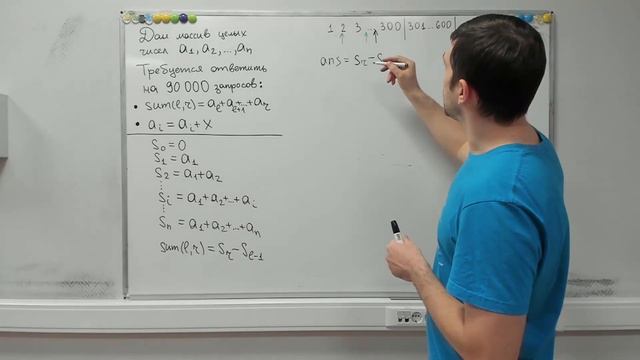 Дан массив целых
чисел a₁, a₂, ..., aₙ
Требуется ответить
на 90 000 запросов:
• sum(l, r) = aₗ + aₗ₊₁ + ... + aᵣ
• aᵢ = aᵢ + x
S₀ = 0
S₁ = a₁
S₂ = a₁ + a₂
⋮
Sᵢ = a₁ + a₂ + ... + aᵢ
⋮
Sₙ = a₁ + a₂ + ... + aₙ
sum(l, r) = Sᵣ − Sₗ₋₁
1 2 3 ... 300 | 301 ... 600 |
ans = Sᵣ − S